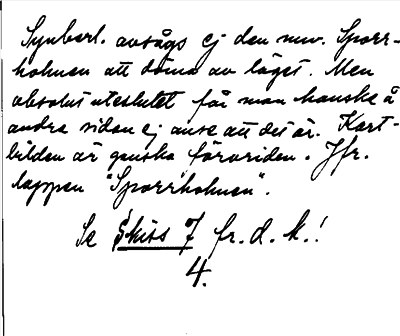 Synberl. avsågs ej den nuv. Sporr-
holmen att döma av läget. Men
absolut uteslutet får man kanske å
andra sidan ej anse att det är. Kart-
bilden är ganska förvriden. Jfr.
lappen "Sporrholmen".
Se Skiss 7 fr. d. k.!
4.